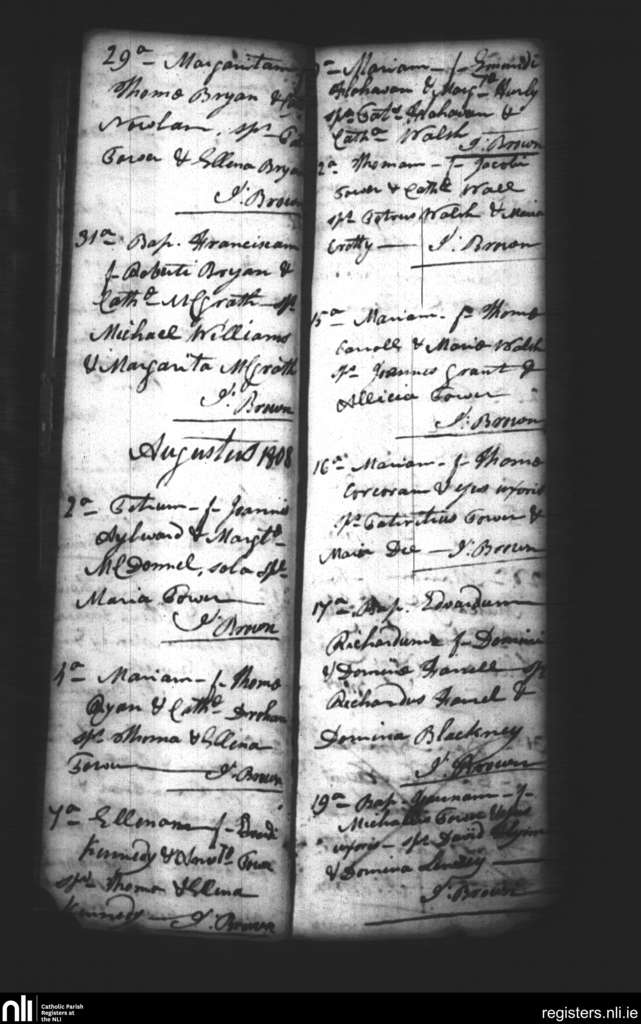 29ᵃ Margaritam
Thomæ Bryan &
Nowlan, spˢ
Power & Ellena Bryan
J: Brown
31ᵃ Bap. Franciscam
f. Roberti Bryan &
Cathᵉ McGrath spˢ
Michael Williams
& Margarita McGrath
J: Brown
Augustus 1808
2ᵃ Petrum f. Joannis
Aylward & Margtᵉ
McDonnel, sola spˢ
Maria Power
J: Brown
4ᵃ Mariam f. Thomæ
Ryan & Cathᵉ Drohan
spˢ Thoma & Ellena
Power J: Brown
7ᵃ Ellenam f.
Kennedy & Power
spˢ Thoma & Ellena
Kennedy J: Brown
Mariam f. Edmundi
Flahavan & Margᵗᵃ Hurly
spˢ Patᵗ Flahavan &
Cathᵃ Walsh J: Brown
Thomam f. Jacobi
Power & Cathᵉ Wall
spˢ Petrus Walsh & Maria
Crotty J: Brown
15ᵃ Mariam f. Thomæ
Carroll & Mariæ Walsh
spˢ Joannes Grant &
Allicia Power
J: Brown
16ᵃ Mariam f. Thomæ
Corcoran & ejus uxoris
spˢ Patritius Power &
Maria Dee J: Brown
17ᵃ Bap. Edvardum
Richardum f. Domini
& Dominæ Farrell spˢ
Richardus Farrel &
Domina Blackney
J: Brown
19ᵃ Bap. f.
Michaelis Power & ejus
uxoris spˢ David
& Domina
J: Brown
nli
Catholic Parish
Registers at
the NLI
registers.nli.ie